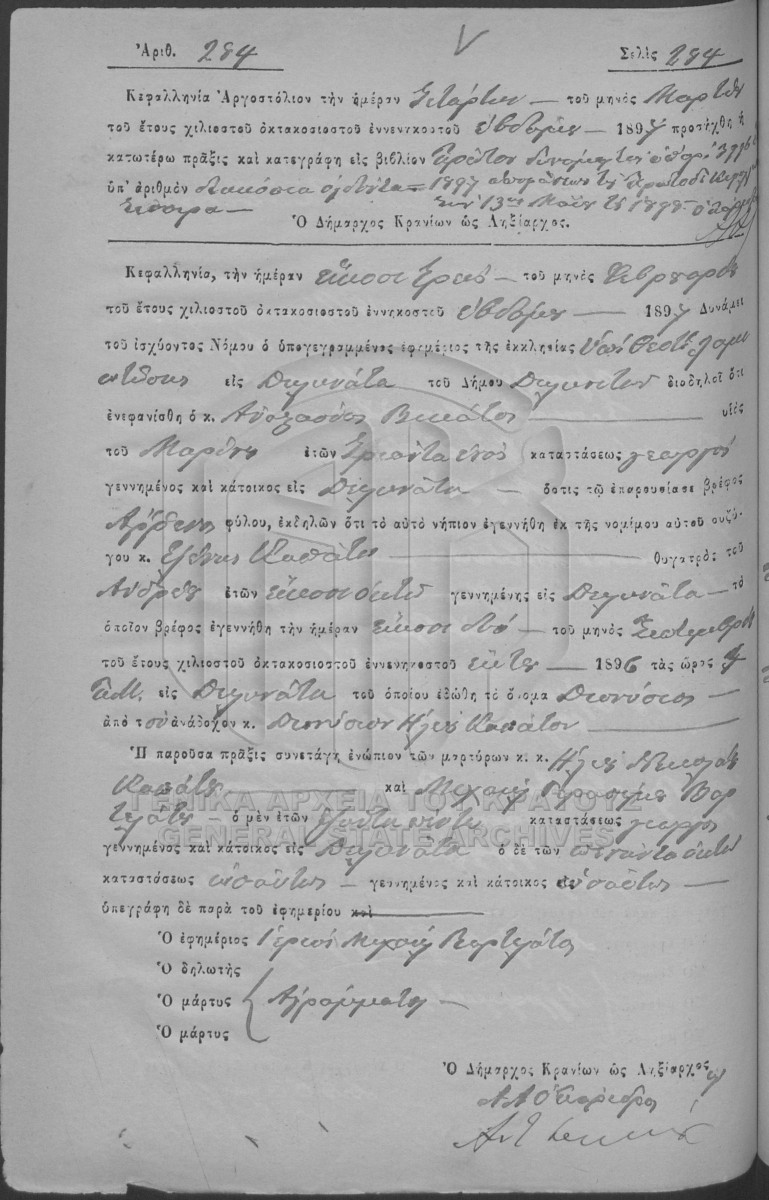 Ἀριθ. 284 Σελὶς 284
Κεφαλληνία Ἀργοστόλιον τὴν ἡμέραν τετάρτην τοῦ μηνὸς Μαρτίου
τοῦ ἔτους χιλιοστοῦ ὀκτακοσιοστοῦ ἐννενηκοστοῦ ἑβδόμου 1897 προσήχθη ἡ
κατωτέρω πρᾶξις καὶ κατεγράφη εἰς βιβλίον πρῶτον
ὑπ' ἀριθμὸν διακόσια ὀγδοήκοντα 1897
τέσσαρα
Ὁ Δήμαρχος Κρανίων ὡς Ληξίαρχος.
Κεφαλληνία, τὴν ἡμέραν εἴκοσι τρεῖς τοῦ μηνὸς Φεβρουαρίου
τοῦ ἔτους χιλιοστοῦ ὀκτακοσιοστοῦ ἐννηκοστοῦ ἑβδόμου 1897 Δυνάμει
τοῦ ἰσχύοντος Νόμου ὁ ὑπογεγραμμένος ἐφημέριος τῆς ἐκκλησίας
εἰς Διλινάτα τοῦ Δήμου Διλινάτων διαδηλοῖ ὅτι
ἐνεφανίσθη ὁ κ. Ἀναστάσιος υἱὸς
τοῦ Μαρίνου ἐτῶν τριάντα ἑνός καταστάσεως γεωργός
γεννημένος καὶ κάτοικος εἰς Διλινάτα ὅστις τῷ ἐπαρουσίασε βρέφος
ἄρρενος φύλου, ἐκδηλῶν ὅτι τὸ αὐτὸ νήπιον ἐγεννήθη ἐκ τῆς νομίμου αὐτοῦ συζύ-
γου κ. Ἑλένης Καπάτου θυγατρὸς τοῦ
Ἀνδρέου ἐτῶν εἴκοσι ὀκτώ γεννημένης εἰς Διλινάτα τὸ
ὁποῖον βρέφος ἐγεννήθη τὴν ἡμέραν εἴκοσι δύο τοῦ μηνὸς Σεπτεμβρίου
τοῦ ἔτους χιλιοστοῦ ὀκτακοσιοστοῦ ἐννενηκοστοῦ ἕκτου 1896 τὰς ὥρας
εἰς Διλινάτα τοῦ ὁποίου ἐδώθη τὸ ὄνομα Διονύσιος
ἀπὸ τὸν ἀνάδοχον κ. Διονύσιον Ἠλία Καπάτον
Ἡ παροῦσα πρᾶξις συνετάγη ἐνώπιον τῶν μαρτύρων κ. κ. Ἠλία Νικολάου
Καπάτου καὶ Μιχαὴλ Γερασίμου Βαρ
ὁ μὲν ἐτῶν ἑξῆντα πέντε καταστάσεως γεωργός
γεννημένος καὶ κάτοικος εἰς Διλινάτα ὁ δὲ τῶν
καταστάσεως ὡσαύτως γεννημένος καὶ κάτοικος ὡσαύτως
ὑπεγράφη δὲ παρὰ τοῦ ἐφημερίου καὶ
Ὁ ἐφημέριος Ἱερεὺς Μιχαὴλ
Ὁ δηλωτὴς
Ὁ μάρτυς Ἀγράμματοι
Ὁ μάρτυς
Ὁ Δήμαρχος Κρανίων ὡς Ληξίαρχος
Ὁ Πάρεδρος
ΓΕΝΙΚΑ ΑΡΧΕΙΑ ΤΟΥ ΚΡΑΤΟΥΣ
GENERAL STATE ARCHIVES